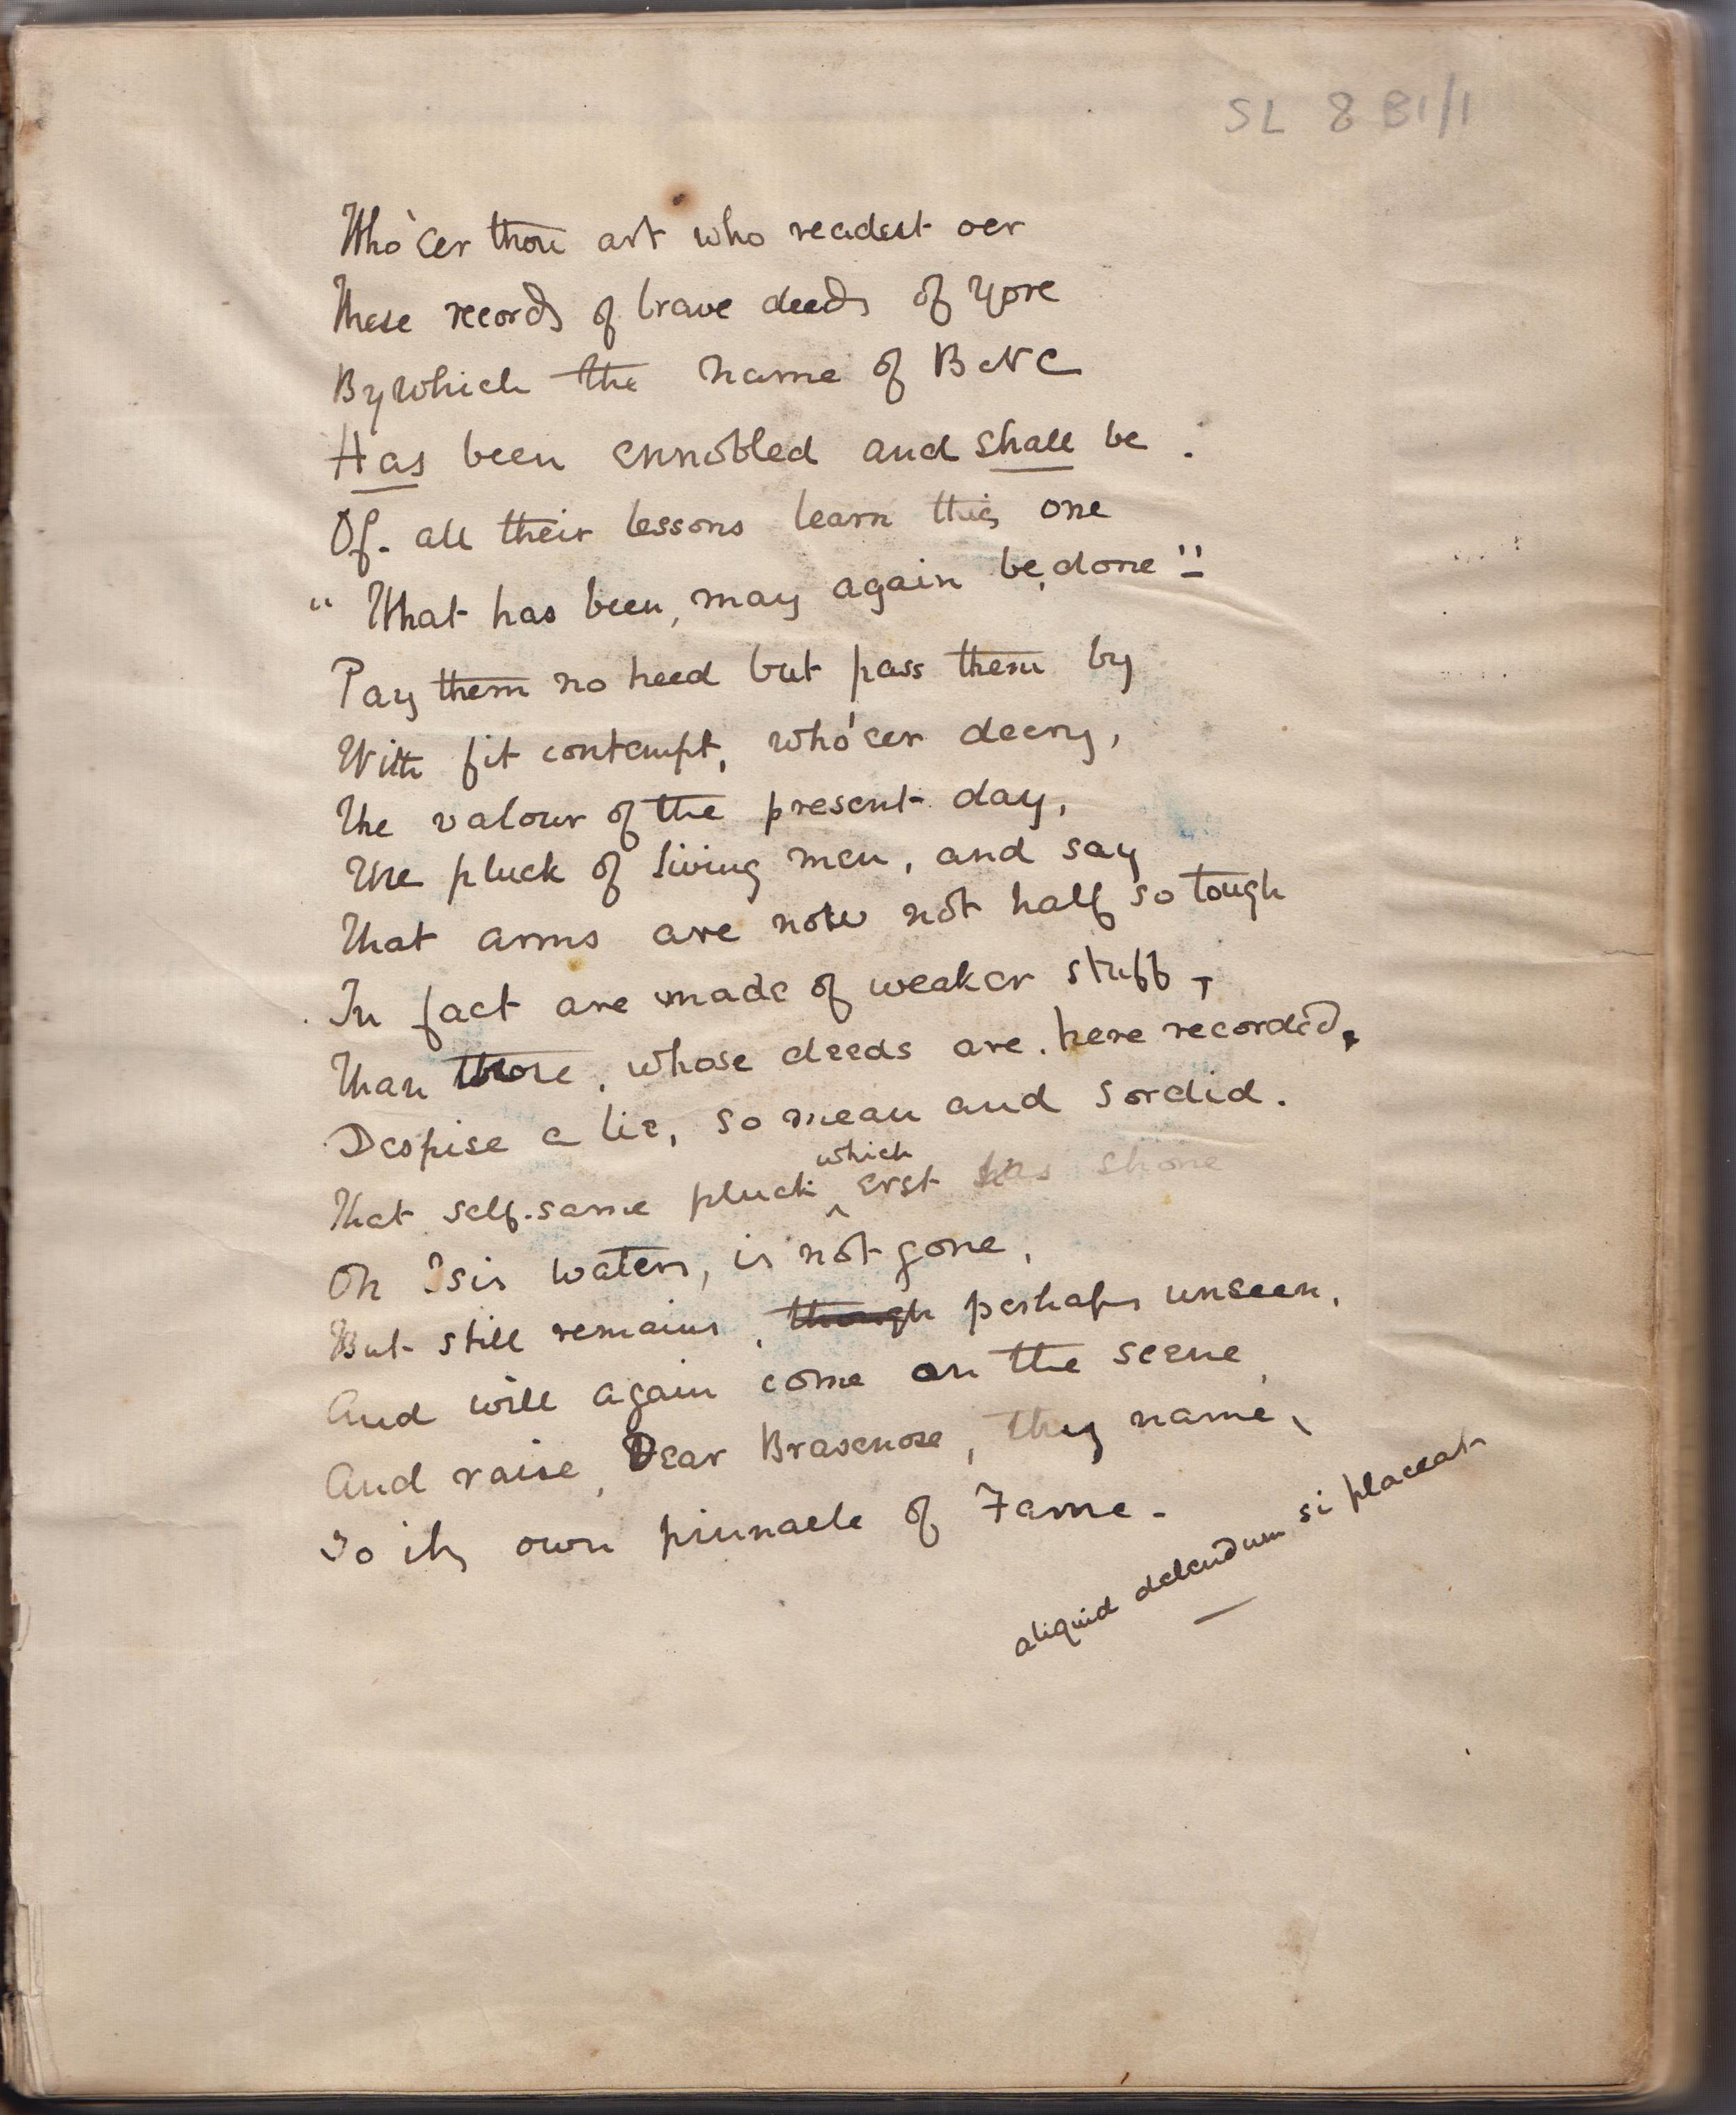 SL 8 B1/1
Who'eer thou art who readest oer
These records of brave deeds of yore
By which the name of BNC
Has been ennobled and shall be .
Of all their lessons learn this one
"What has been, may again be, done"!
Pay them no heed but pass them by
With fit contempt, who'eer decry,
The valour of the present day,
The pluck of living men, and say
That arms are now not half so tough
In fact are made of weaker stuff,
Than those, whose deeds are here recorded,
Despise a lie, so mean and sordid.
That self-same pluck which erst has shone
On Isis waters, is not gone,
But still remains, though perhaps unseen,
And will again come on the scene,
And raise, Dear Brasenose, thy name,
To its own pinnacle of Fame.
aliquid delendum si placeat